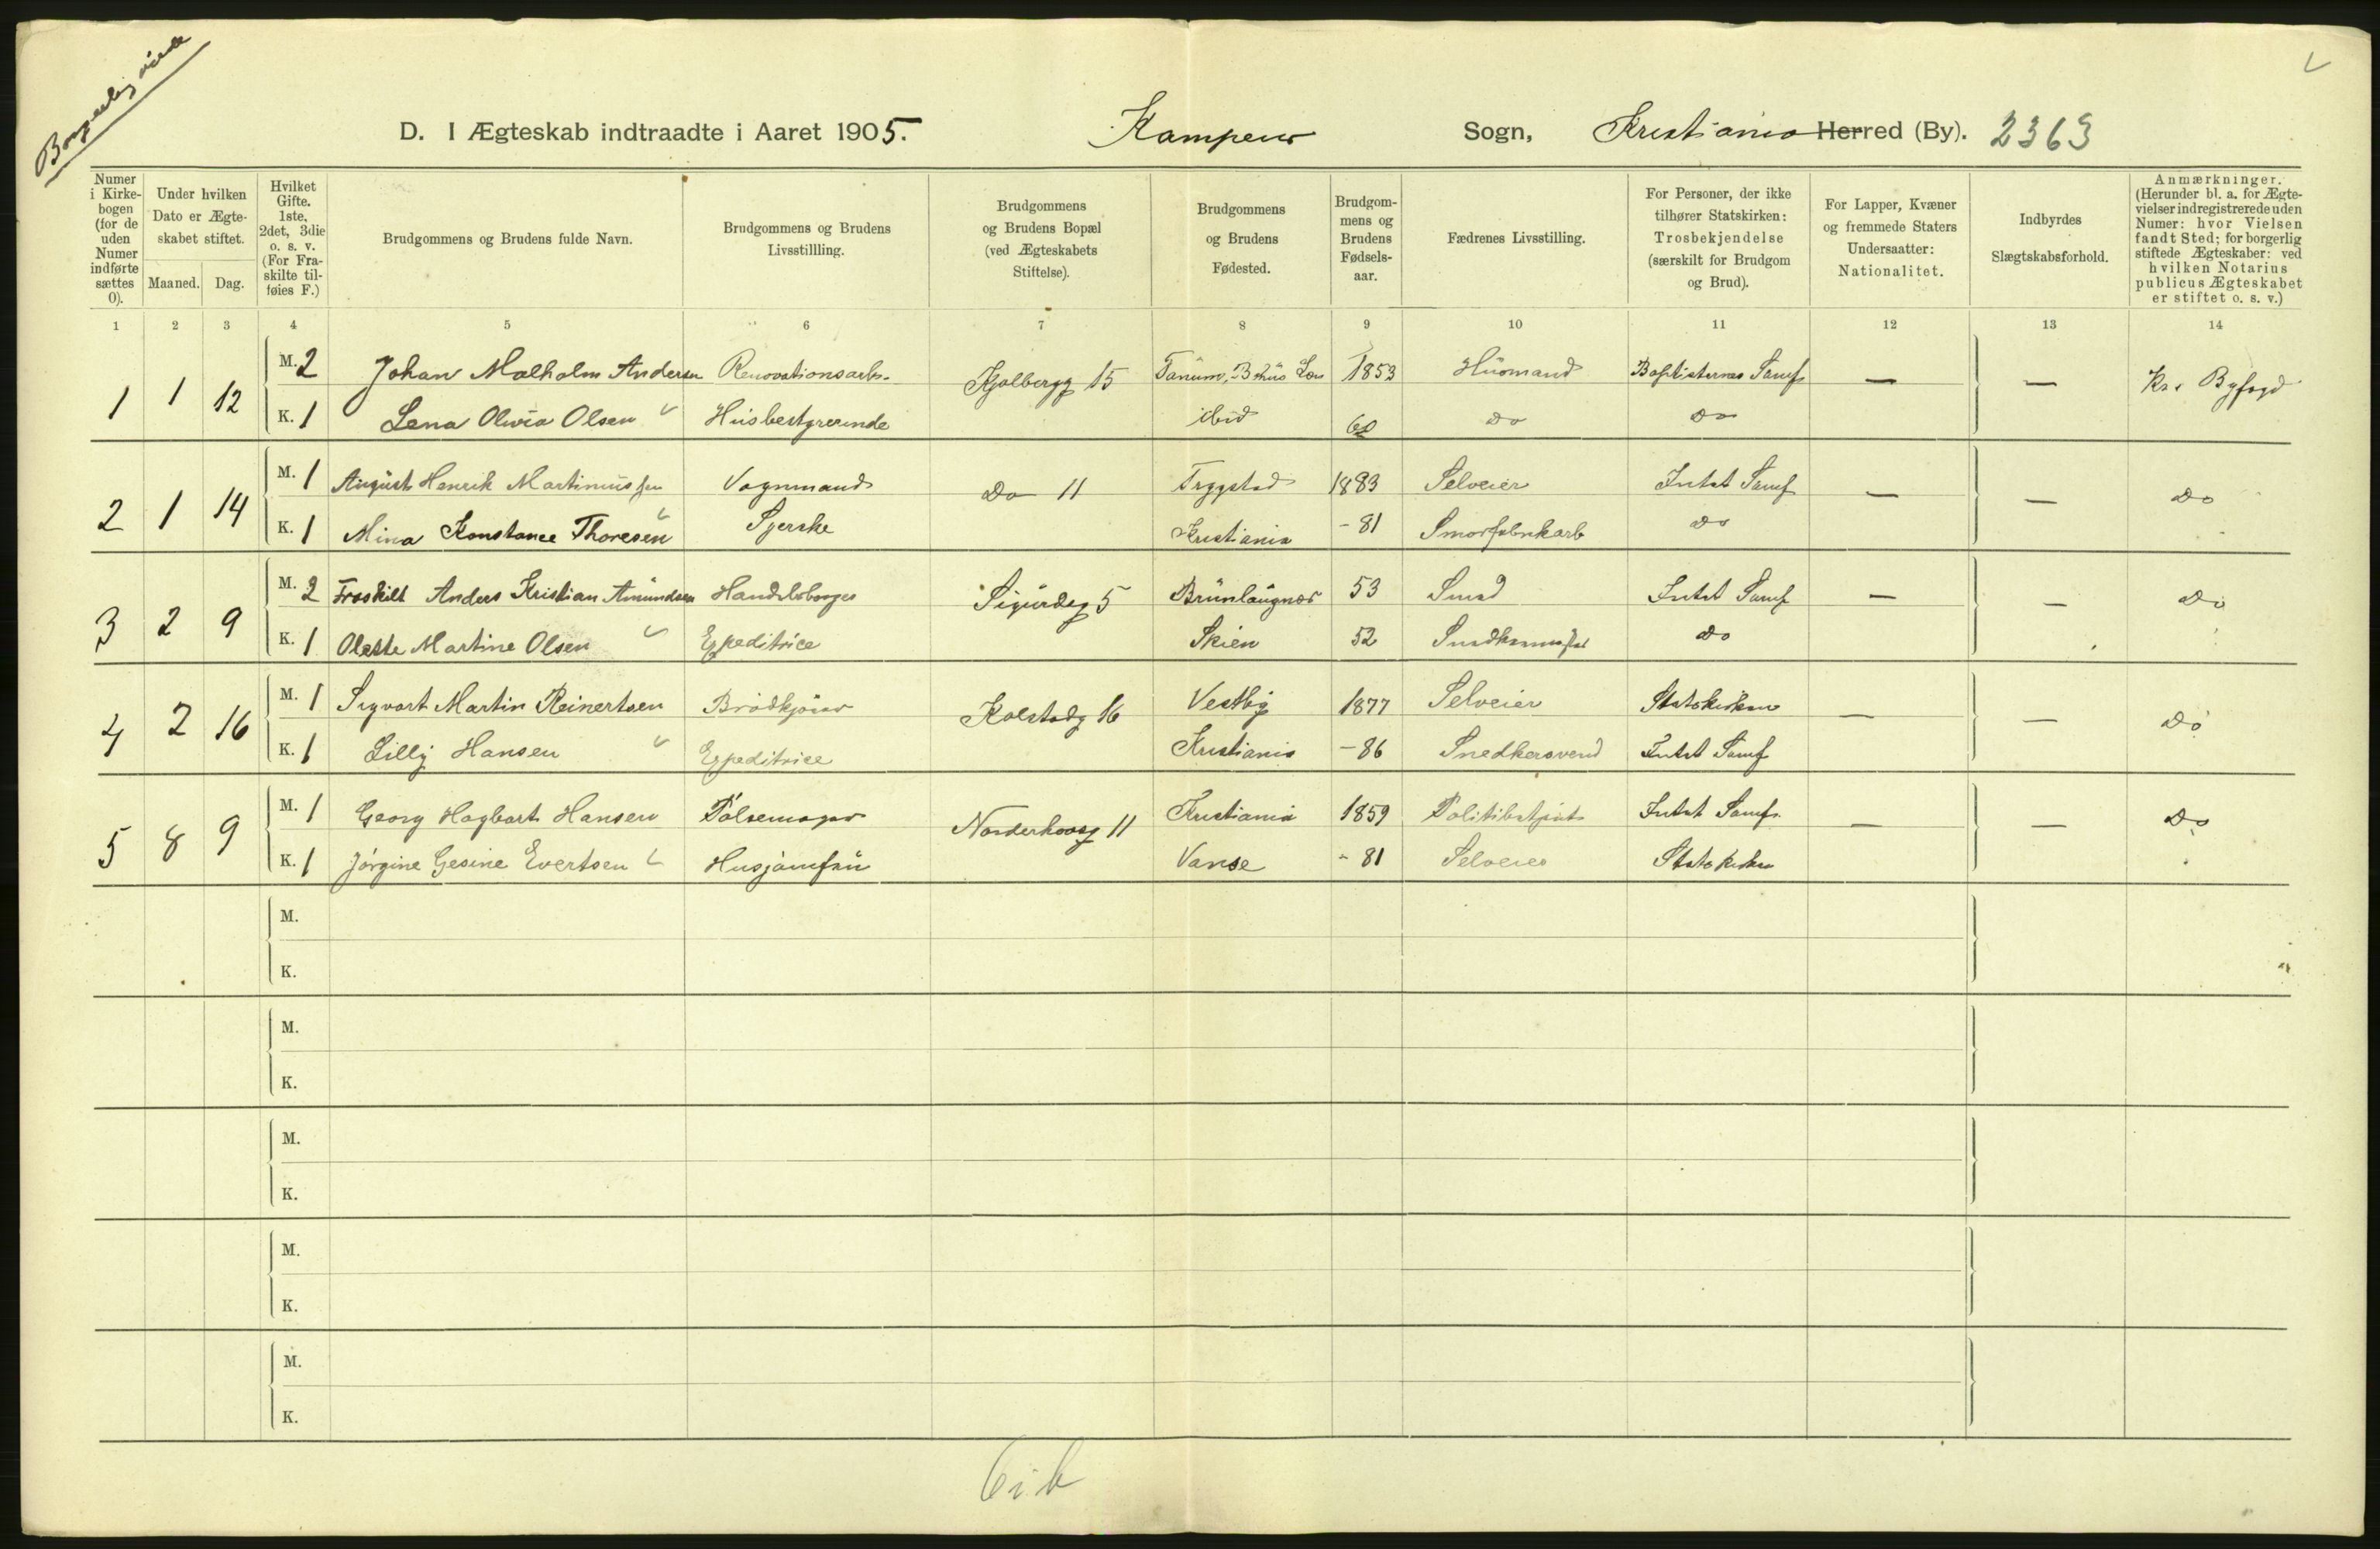 Borgerlig viede
D. I Ægteskab indtraadte i Aaret 1905. Kampens Sogn, Kristiania Herred (By). 2363
Numer i Kirkebogen (for de uden Numer indførte sættes 0).
Under hvilken Dato er Ægteskabet stiftet.
Maaned. Dag.
Hvilket Gifte. 1ste, 2det, 3die o. s. v. (For Fraskilte tilføies F.)
Brudgommens og Brudens fulde Navn.
Brudgommens og Brudens Livsstillling.
Brudgommens og Brudens Bopæl (ved Ægteskabets Stiftelse).
Brudgommens og Brudens Fødested.
Brudgommens og Brudens Fødselsaar.
Fædrenes Livsstilling.
For Personer, der ikke tilhører Statskirken: Trosbekjendelse (særskilt for Brudgom og Brud).
For Lapper, Kvæner og fremmede Staters Undersaatter: Nationalitet.
Indbyrdes Slægtskabsforhold.
Anmærkninger. (Herunder bl. a. for Ægtevielser indregistrerede uden Numer: hvor Vielsen fandt Sted; for borgerlig stiftede Ægteskaber: ved hvilken Notarius publicus Ægteskabet er stiftet o. s. v.)
1 2 3 4 5 6 7 8 9 10 11 12 13 14
1 1 12 M. 2 Johan Malholm Andersen Renovationsarb. Kjølbergg 15 Tanum, Bhus Len 1853 Husmand Baptisternes Samf — — Kr. Byfogd
K. 1 Lena Olivia Olsen Husbestyrerinde ibid 60 Do Do
2 1 14 M. 1 August Henrik Martinussen Vognmand Do 11 Trygstad 1883 Selveier Intet Samf — — Do
K. 1 Mina Konstance Thoresen Syerske Kristiania - 81 Smørfabrikarb Do
3 2 9 M. 2 Fraskilt Anders Kristian Amundsen Handelsborger Sigurdsg 5 Brunlaugnes 53 Smed Intet Samf — — Do
K. 1 Oleste Martine Olsen Expeditrice Skien 52 Do
4 2 16 M. 1 Sigvart Martin Reinertsen Brødkjører Kolstadg 16 Vestby 1877 Selveier Statskirken — — Do
K. 1 Lilly Hansen Expeditrice Kristiania - 86 Snedkersvend Intet Samf
5 8 9 M. 1 Georg Hagbart Hansen Pølsemager Norderhovsg 11 Kristiania 1859 Politibetjent Intet Samf. — — Do
K. 1 Jørgine Gesine Evertsen Husjomfru Vanse - 81 Selveier Statskirken
M.
K.
M.
K.
M.
K.
M.
K.
M.
K.